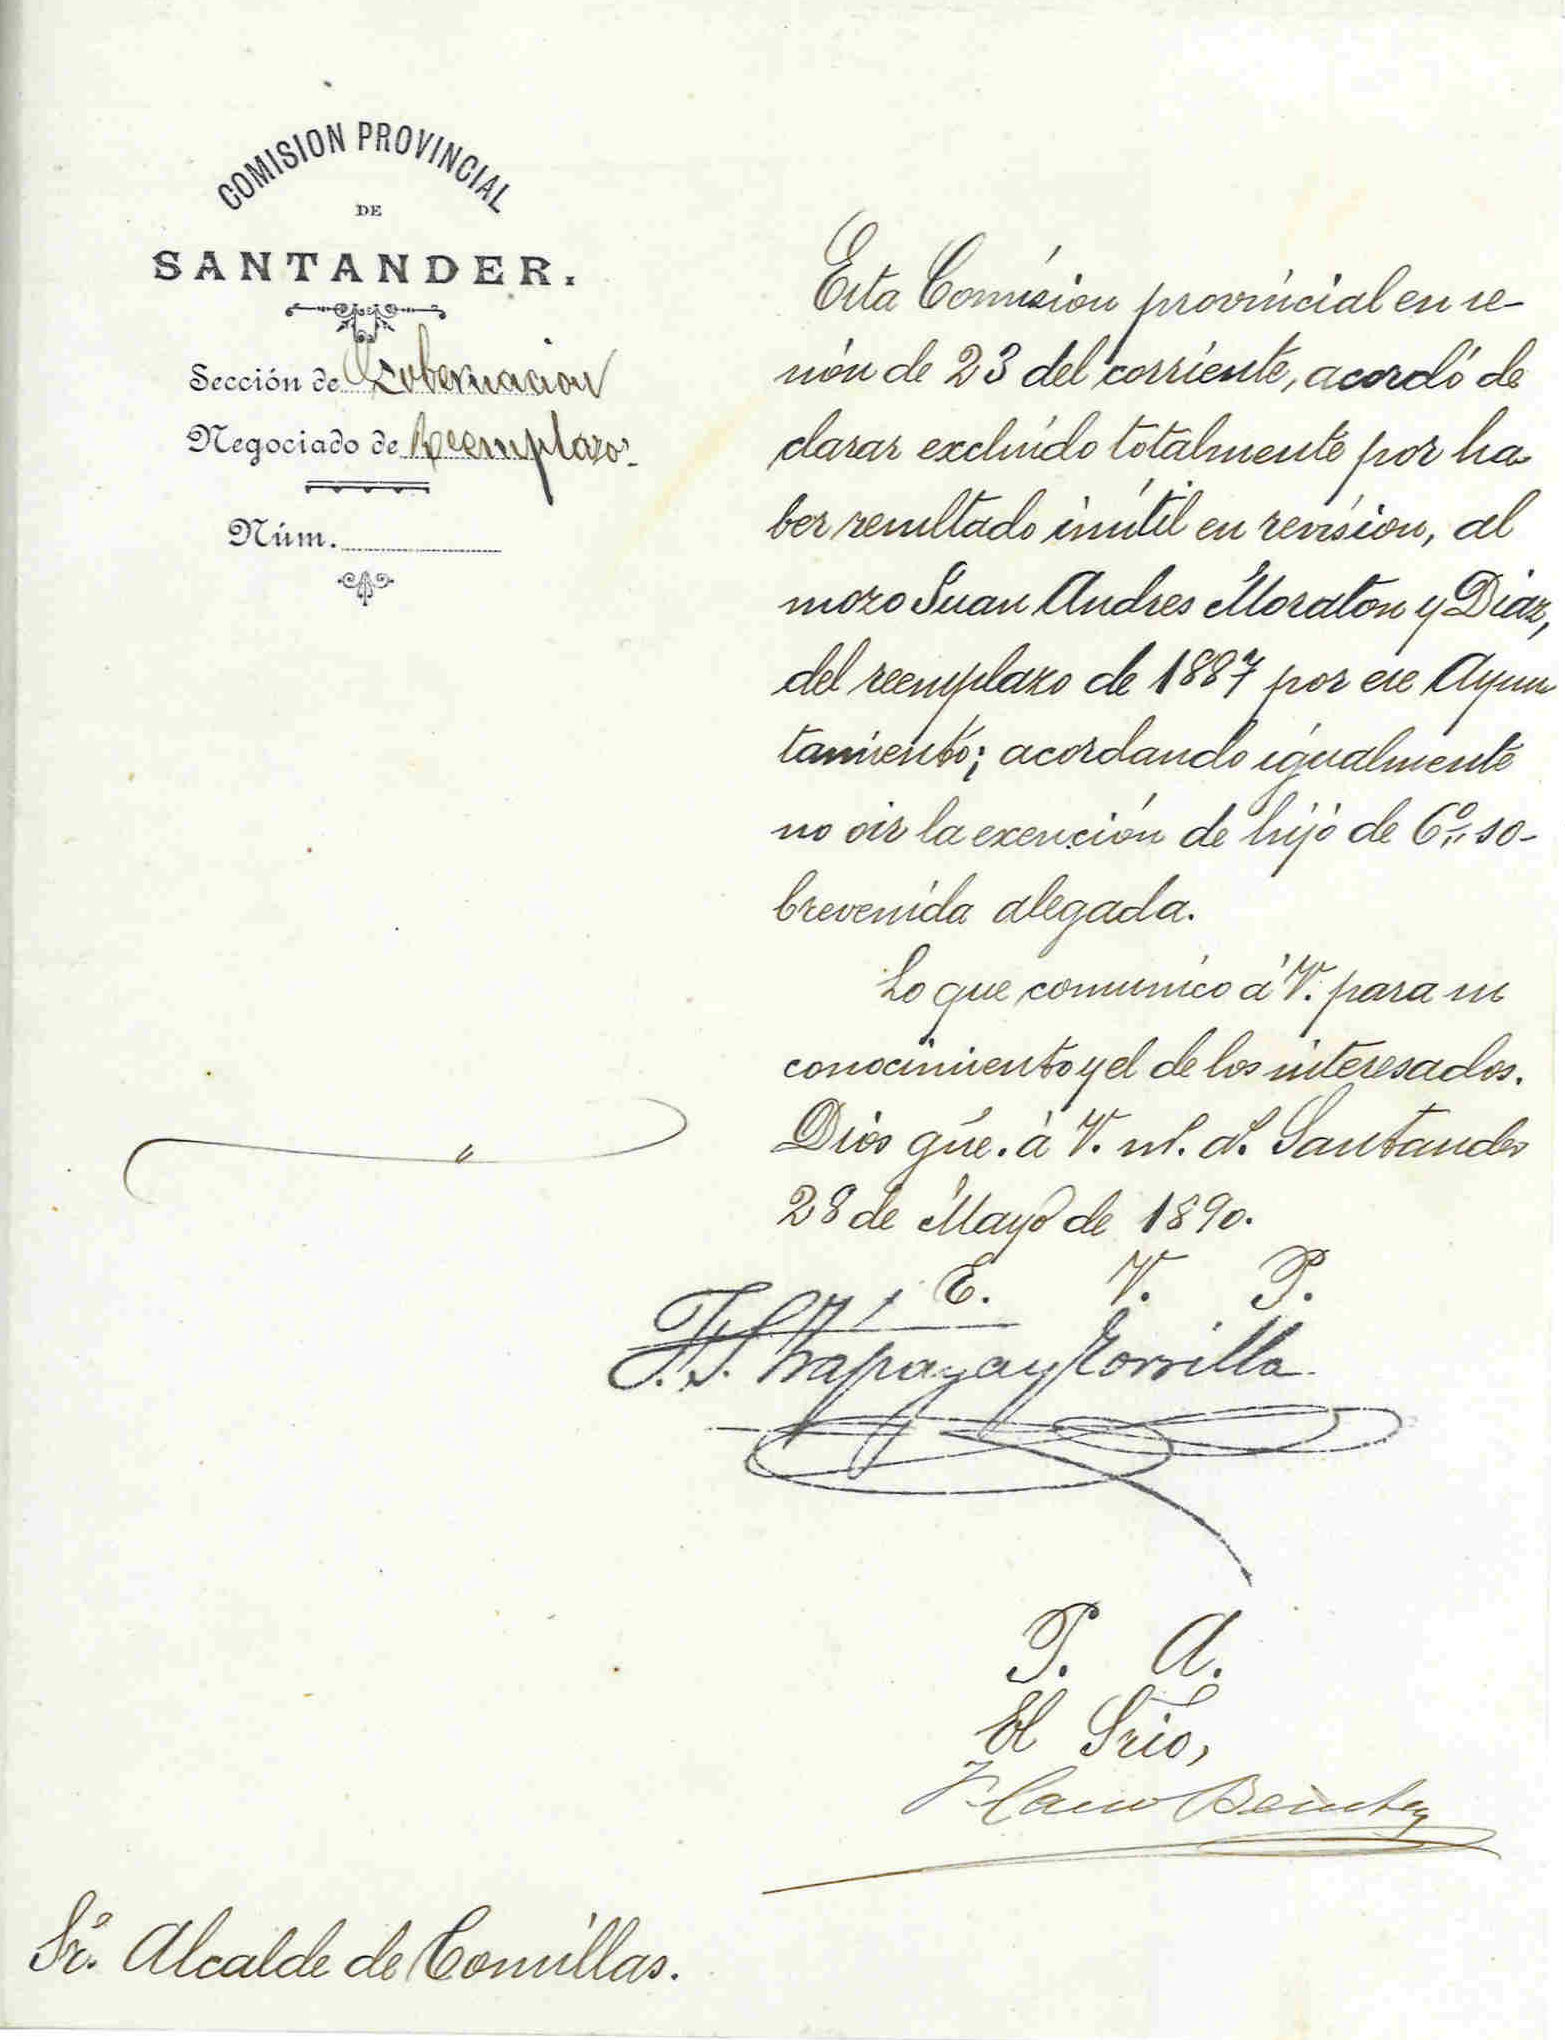 COMISION PROVINCIAL
DE
SANTANDER.
Sección de Gobernacion
Negociado de Reemplazos
Núm.
Esta Comision provincial en se-
sión de 23 del corriente, acordó de
clarar excluido totalmente por ha
ber resultado inútil en revision, al
mozo Juan Andres Moraton y Diaz,
del reemplazo de 1887 por ese Ayun
tamiento; acordando igualmente
no oir la exención de hijo de 60,, so-
brevenida alegada.
Lo que comunico á V. para su
conocimiento y el de los interesados.
Dios gúe. á V. m. a. Santander
28 de Mayo de 1890.
E. V. P.
y Zorrilla
P. A.
El Srio,
Sr. Alcalde de Comillas.